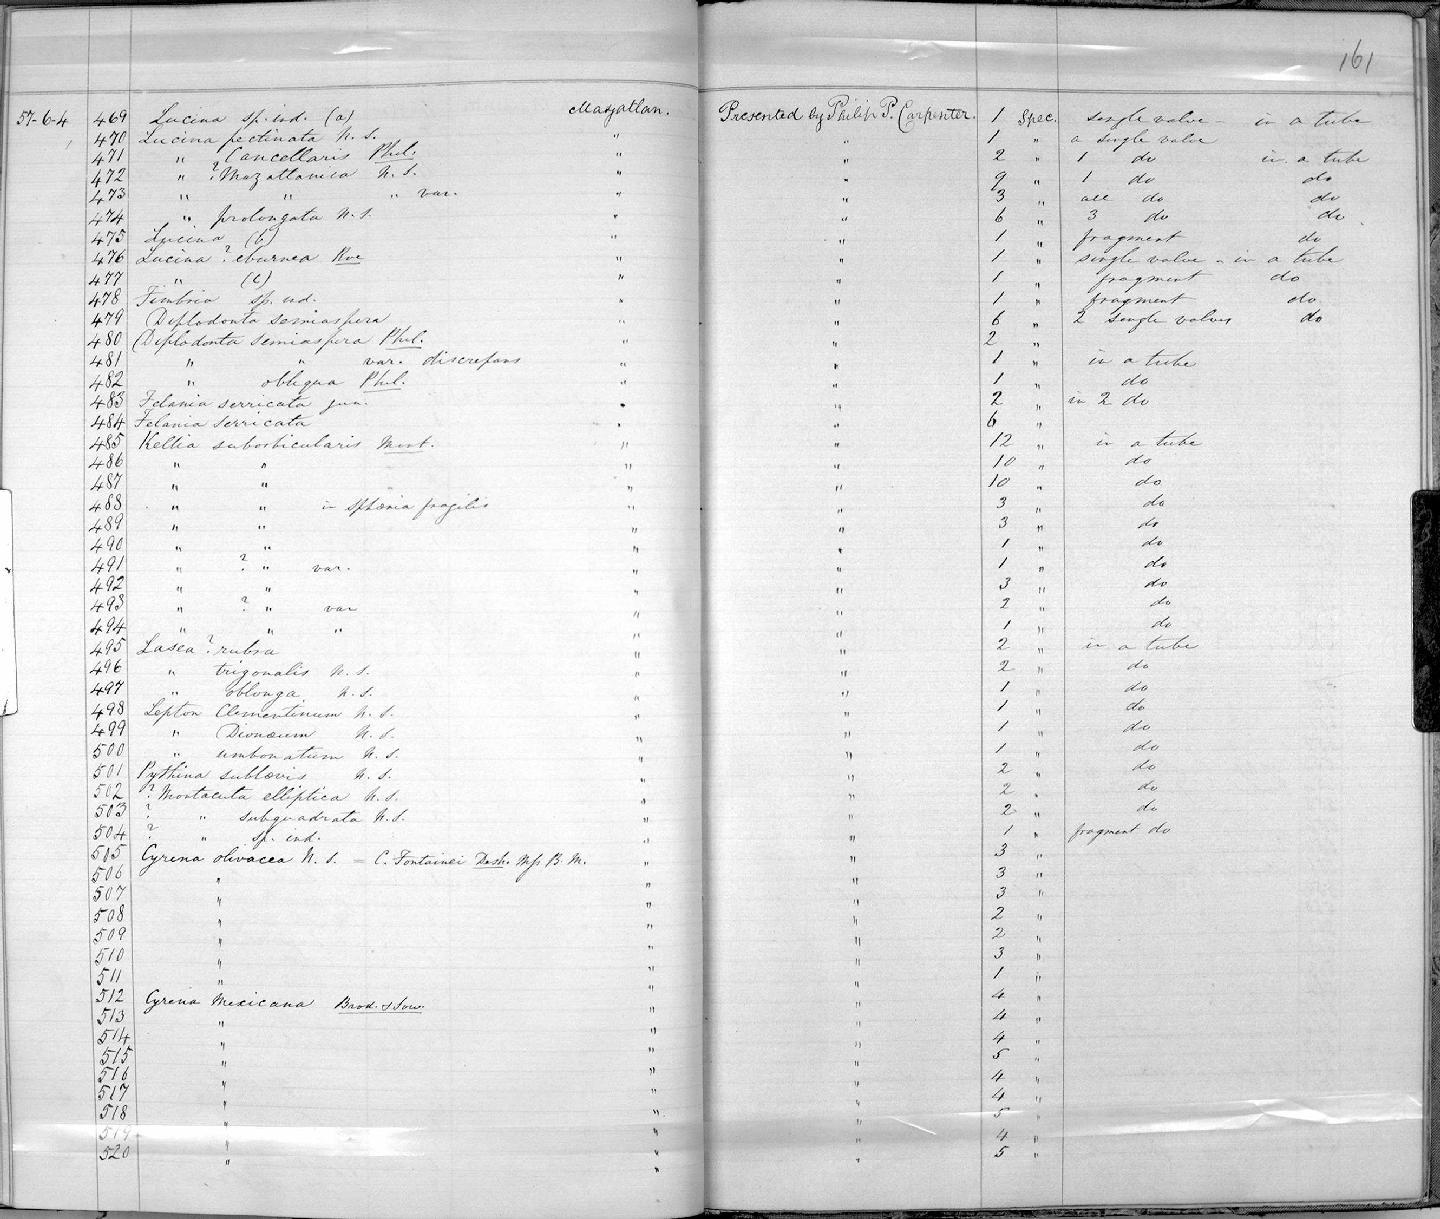 161
57-6-4 469 Lucina sp. ind. (a) Mazatlan. Presented by Philip P. Carpenter. 1 Spec. single valve - in a tube
470 Lucina pectinata N. S. " " 1 " a single valve
471 " Cancellaris Phil. " " 2 " 1 do in a tube
472 " ? Mazatlanica N. S. " " 9 " 1 do do
473 " " " var. " " 3 " all do do
474 " prolongata N. S. " " 6 " 3 do do
475 Lucina (b) " " 1 " fragment do
476 Lucina ? eburnea Rve " " 1 " single valve - in a tube
477 " (c) " " 1 " fragment do
478 Fimbria sp. ind. " " 1 " fragment do
479 Diplodonta semiaspera " " 6 " 2 single valves do
480 Diplodonta semiaspera Phil. " " 2 "
481 " " var. discrepans " " 1 " in a tube
482 " obliqua Phil. " " 1 " do
483 Felania serricata jun. " " 2 " in 2 do
484 Felania serricata " " 6 "
485 Kellia suborbicularis Mont. " " 12 " in a tube
486 " " " " 10 " do
487 " " " " 10 " do
488 " " in Sphænia fragilis " " 3 " do
489 " " " " 3 " do
490 " " " " 1 " do
491 " ? " var. " " 1 " do
492 " " " " 3 " do
493 " ? " var " " 2 " do
494 " " " " " 1 " do
495 Lasea ? rubra " " 2 " in a tube
496 " trigonalis N. S. " " 2 " do
497 " oblonga N. S. " " 1 " do
498 Lepton Clementinum N. S. " " 1 " do
499 " Dionæum N. S. " " 1 " do
500 " umbonatum N. S. " " 1 " do
501 Pythina sublævis N. S. " " 2 " do
502 ? Montacuta elliptica N. S. " " 2 " do
503 ? " subquadrata N. S. " " 2 " do
504 ? " sp. ind. " " 1 " fragment do
505 Cyrena olivacea N. S. = C. Fontainei Desh. Mss B. M. " " 3 "
506 " " " 3 "
507 " " " 3 "
508 " " " 2 "
509 " " " 2 "
510 " " " 3 "
511 " " " 1 "
512 Cyrena Mexicana Brod. & Sow. " " 4 "
513 " " " 4 "
514 " " " 4 "
515 " " " 5 "
516 " " " 4 "
517 " " " 4 "
518 " " " 5 "
519 " " " 4 "
520 " " " 5 "